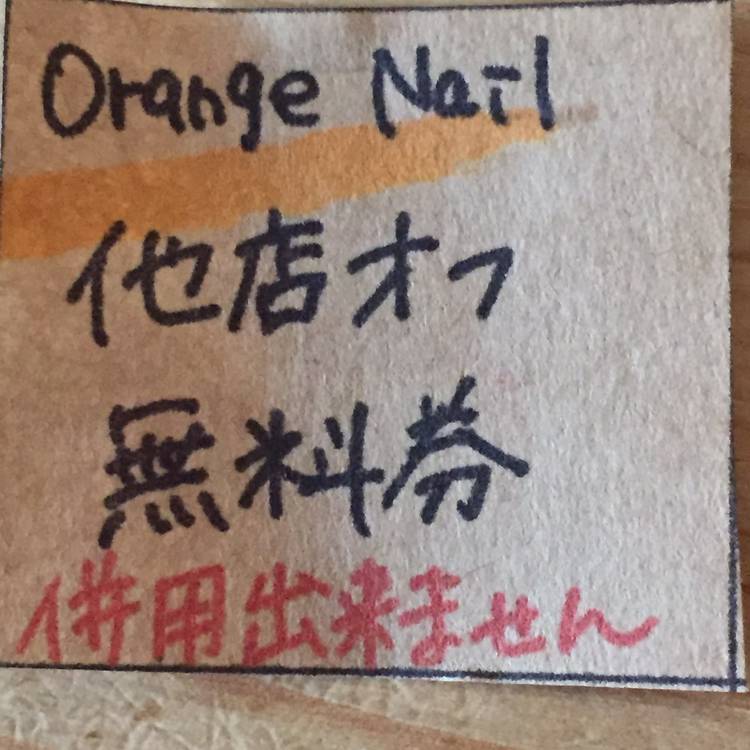 Orange Nail
他店オフ
無料券
併用出来ません